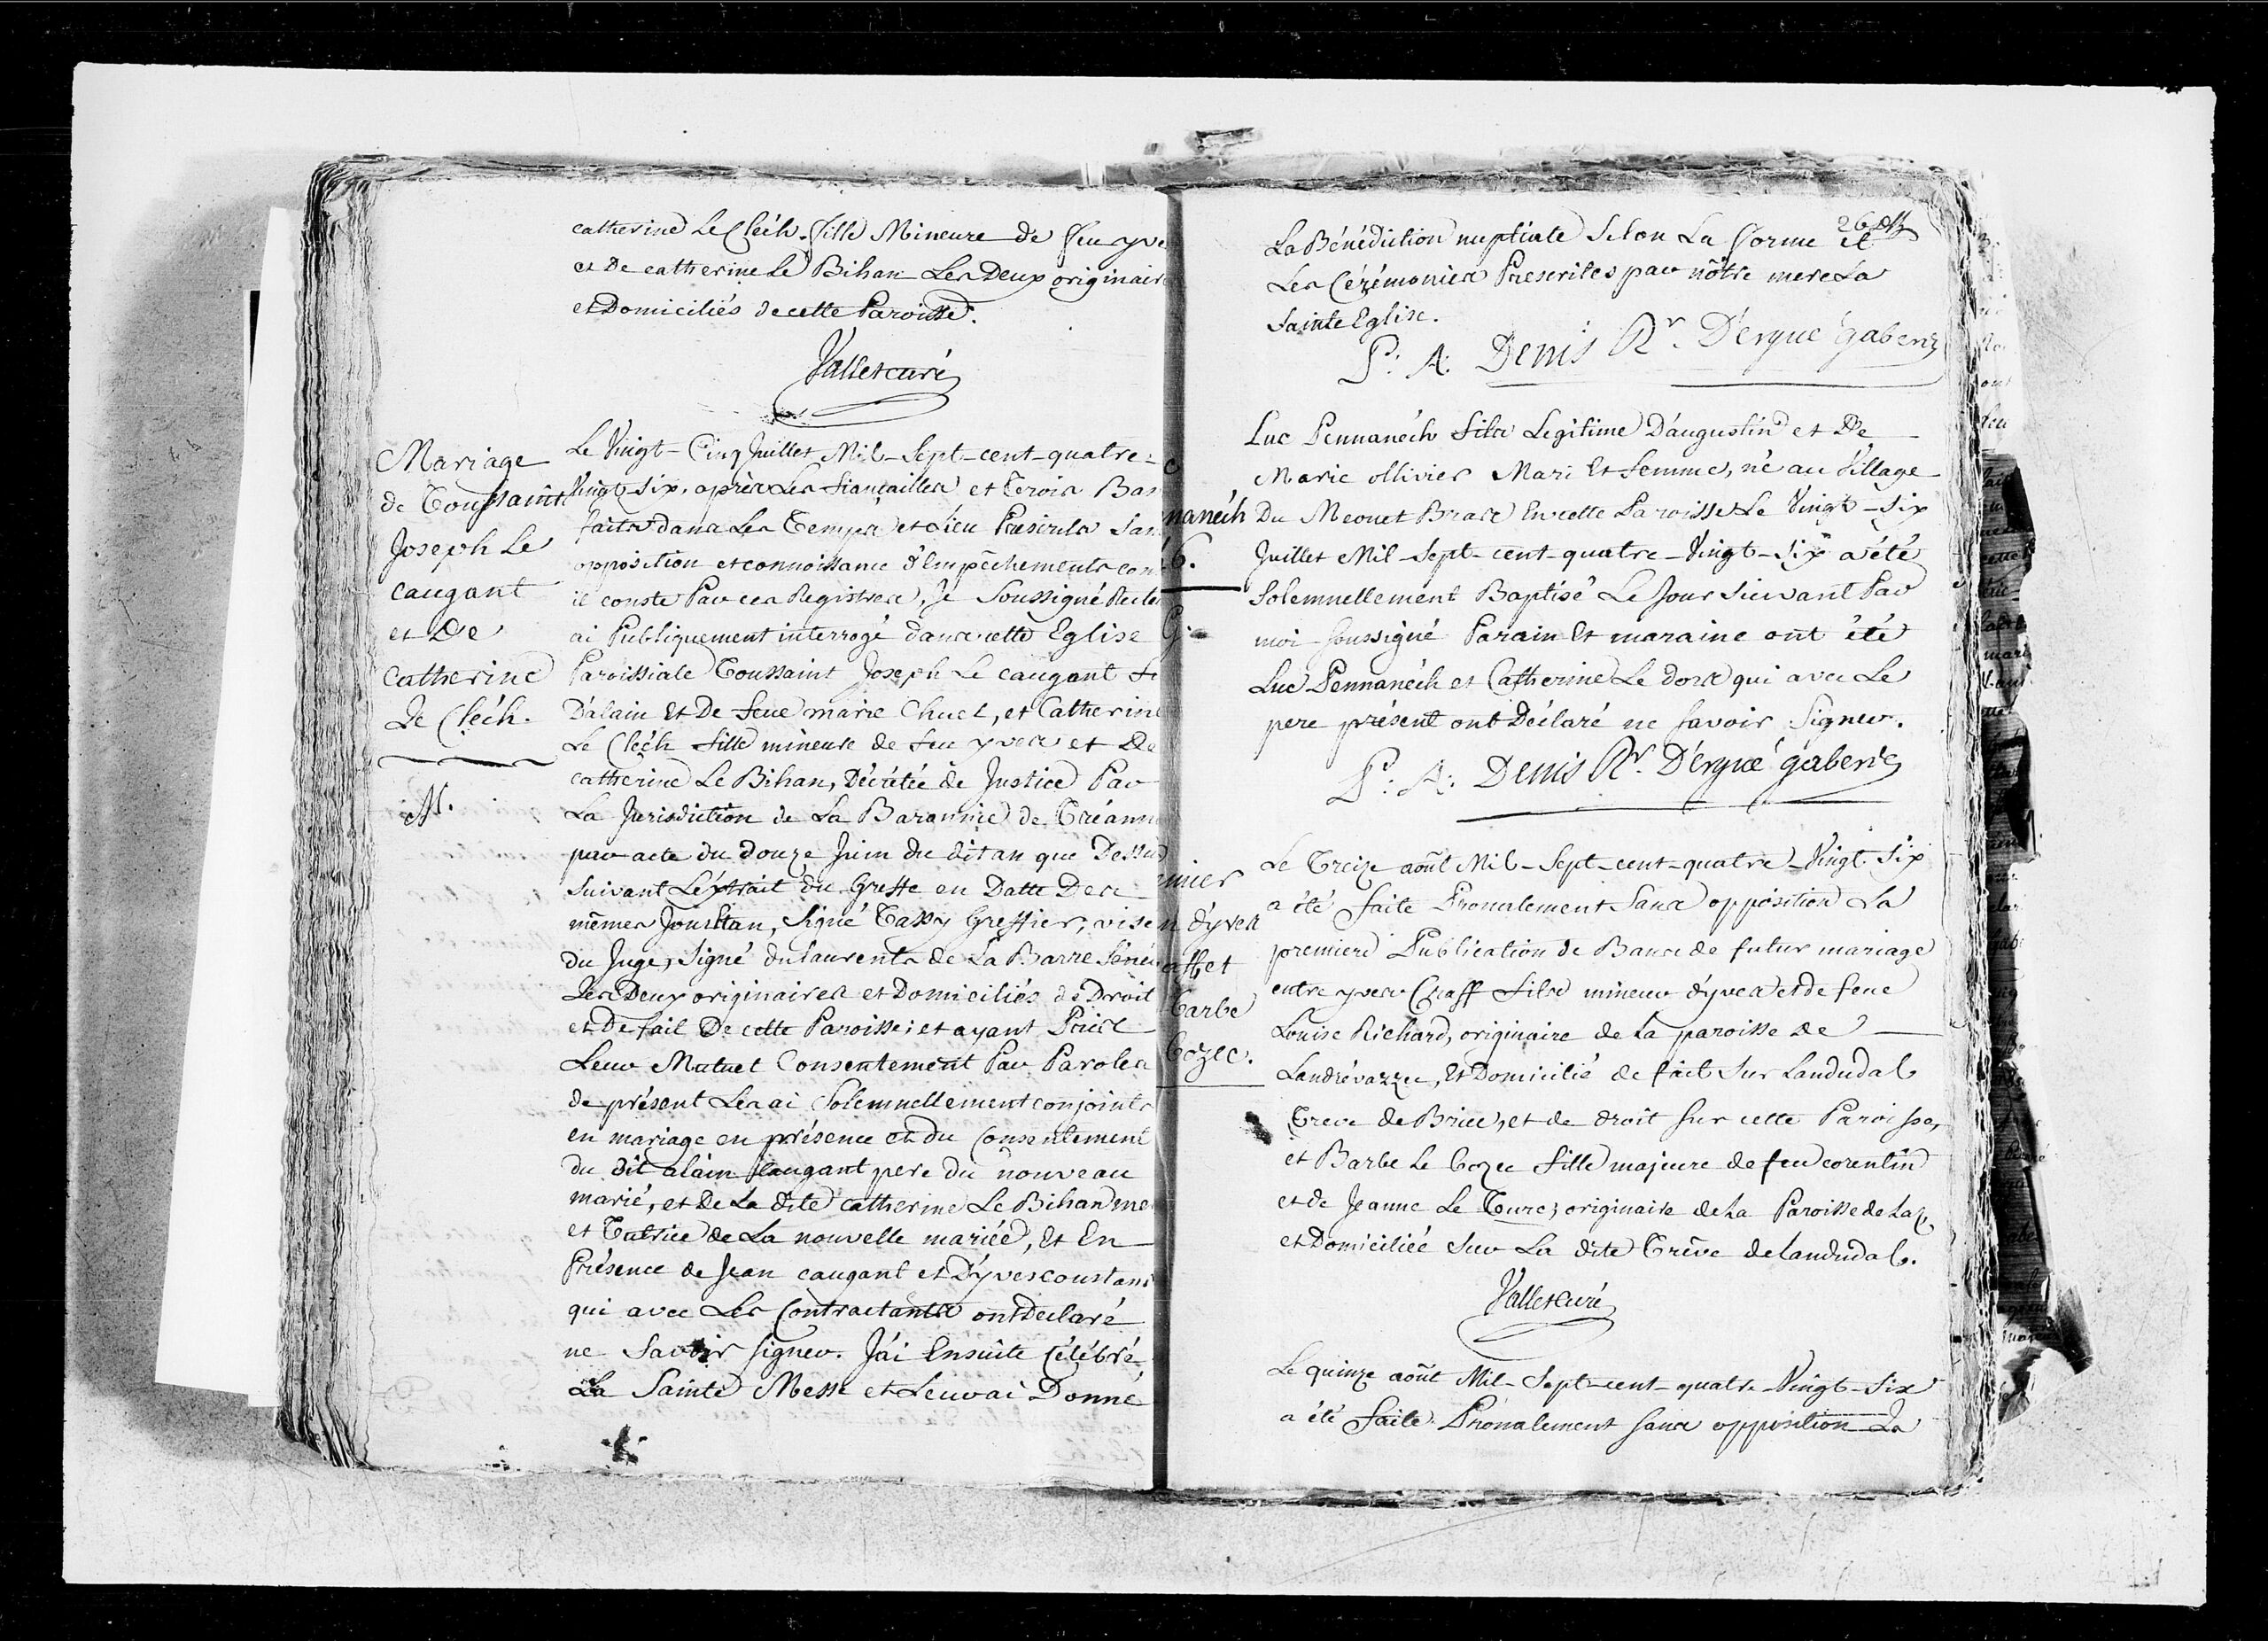 catherine Le Cléch. fille Mineure de feu yve
et De catherine Le Bihan Les Deux originair
et Domiciliés de cette Paroisse.
Vallet curé
Mariage
de Toussaint
Joseph Le
caugant
et De
Catherine
Le Cléch.
M.
Le Vingt-Cinq Juillet Mil-Sept-cent-quatre-
Vingt-Six, après Les fiançailles et Trois Ban
faits dans Les Temps et Lieu Prescrits San
opposition et connoissance d'Empêchements com
il conste Par ces Registres, Je Soussigné Recte
ai Publiquement interrogé dans cette Eglise
Paroissiale Toussaint Joseph Le caugant fi
D'alain Et De feue marie Chuet, et Catherine
Le Cléch fille mineure de feu yves et De
catherine Le Bihan, Décrétée de Justice Par
La Jurisdiction de La Baronnie de Tréanna
par acte du Douze Juin du dit an que Dessus
Suivant L'éxtrait du Greffe en Datte Des
mêmes Jour Et an, Signé Tassy Greffier, vise
du Juge, Signé dulaurents de La Barre Sénéc
Les Deux originaires et Domiciliés de Droit
et De fait De cette Paroisse; et ayant Pris
Leur Mutuel Consentement Par Paroles
de présent Les ai Solemnellement conjoints
en mariage en présence et du Consentement
du dit alain caugant pere du nouveau
marié, et de La dite catherine Le Bihan me
et Tutrice de La nouvelle mariée, Et En
Présence de Jean caugant et D'yves coustans
qui avec Les Contractants ont Declaré
ne Savoir signer. J'ai Ensuite Célébré
La Sainte Messe et Leur ai Donné
nanéch
6.
G.
unier
n d'yves
aff et
barbe
Cozec.
26
La Bénédiction nuptiale Selon La forme et
Les Cérémonies Prescrites par nôtre mere La
Sainte Eglise.
P: A: Denis Rr. D'ergué gaberic
Luc Pennanéch fils Legitime D'augustin et De
Marie ollivier Mari Et femme, né au Village
Du Meouet Bras En cette Paroisse Le Vingt-Six
Juillet Mil-Sept-cent-quatre-Vingt-Six a été
Solemnellement Baptisé Le Jour Suivant Par
moi Soussigné Parain Et maraine ont été
Luc Pennanéch et Catherine Le dors qui avec Le
pere présent ont Déclaré ne Savoir Signer.
P: A: Denis Rr. D'ergué gaberic
Le Treize août Mil-Sept-cent-quatre-Vingt-Six
a été faite Pronalement Sans opposition La
premiere Publication de Bans de futur mariage
entre yves Craff fils mineur d'yves et de feue
Louise Richard, originaire de La paroisse de
Landrévarzec, Et Domicilié de fait Sur Landudal
Treve de Briec, et de droit sur cette Paroisse,
et Barbe Le Cozec fille majeure de feu corentin
et de Jeanne Le Turc; originaire de La Paroisse de Laz,
et Domiciliée Sur La dite Trêve de landudal.
Vallet curé
Le quinze août Mil-Sept-cent-quatre-Vingt-Six
a été faite Pronalement sans opposition La